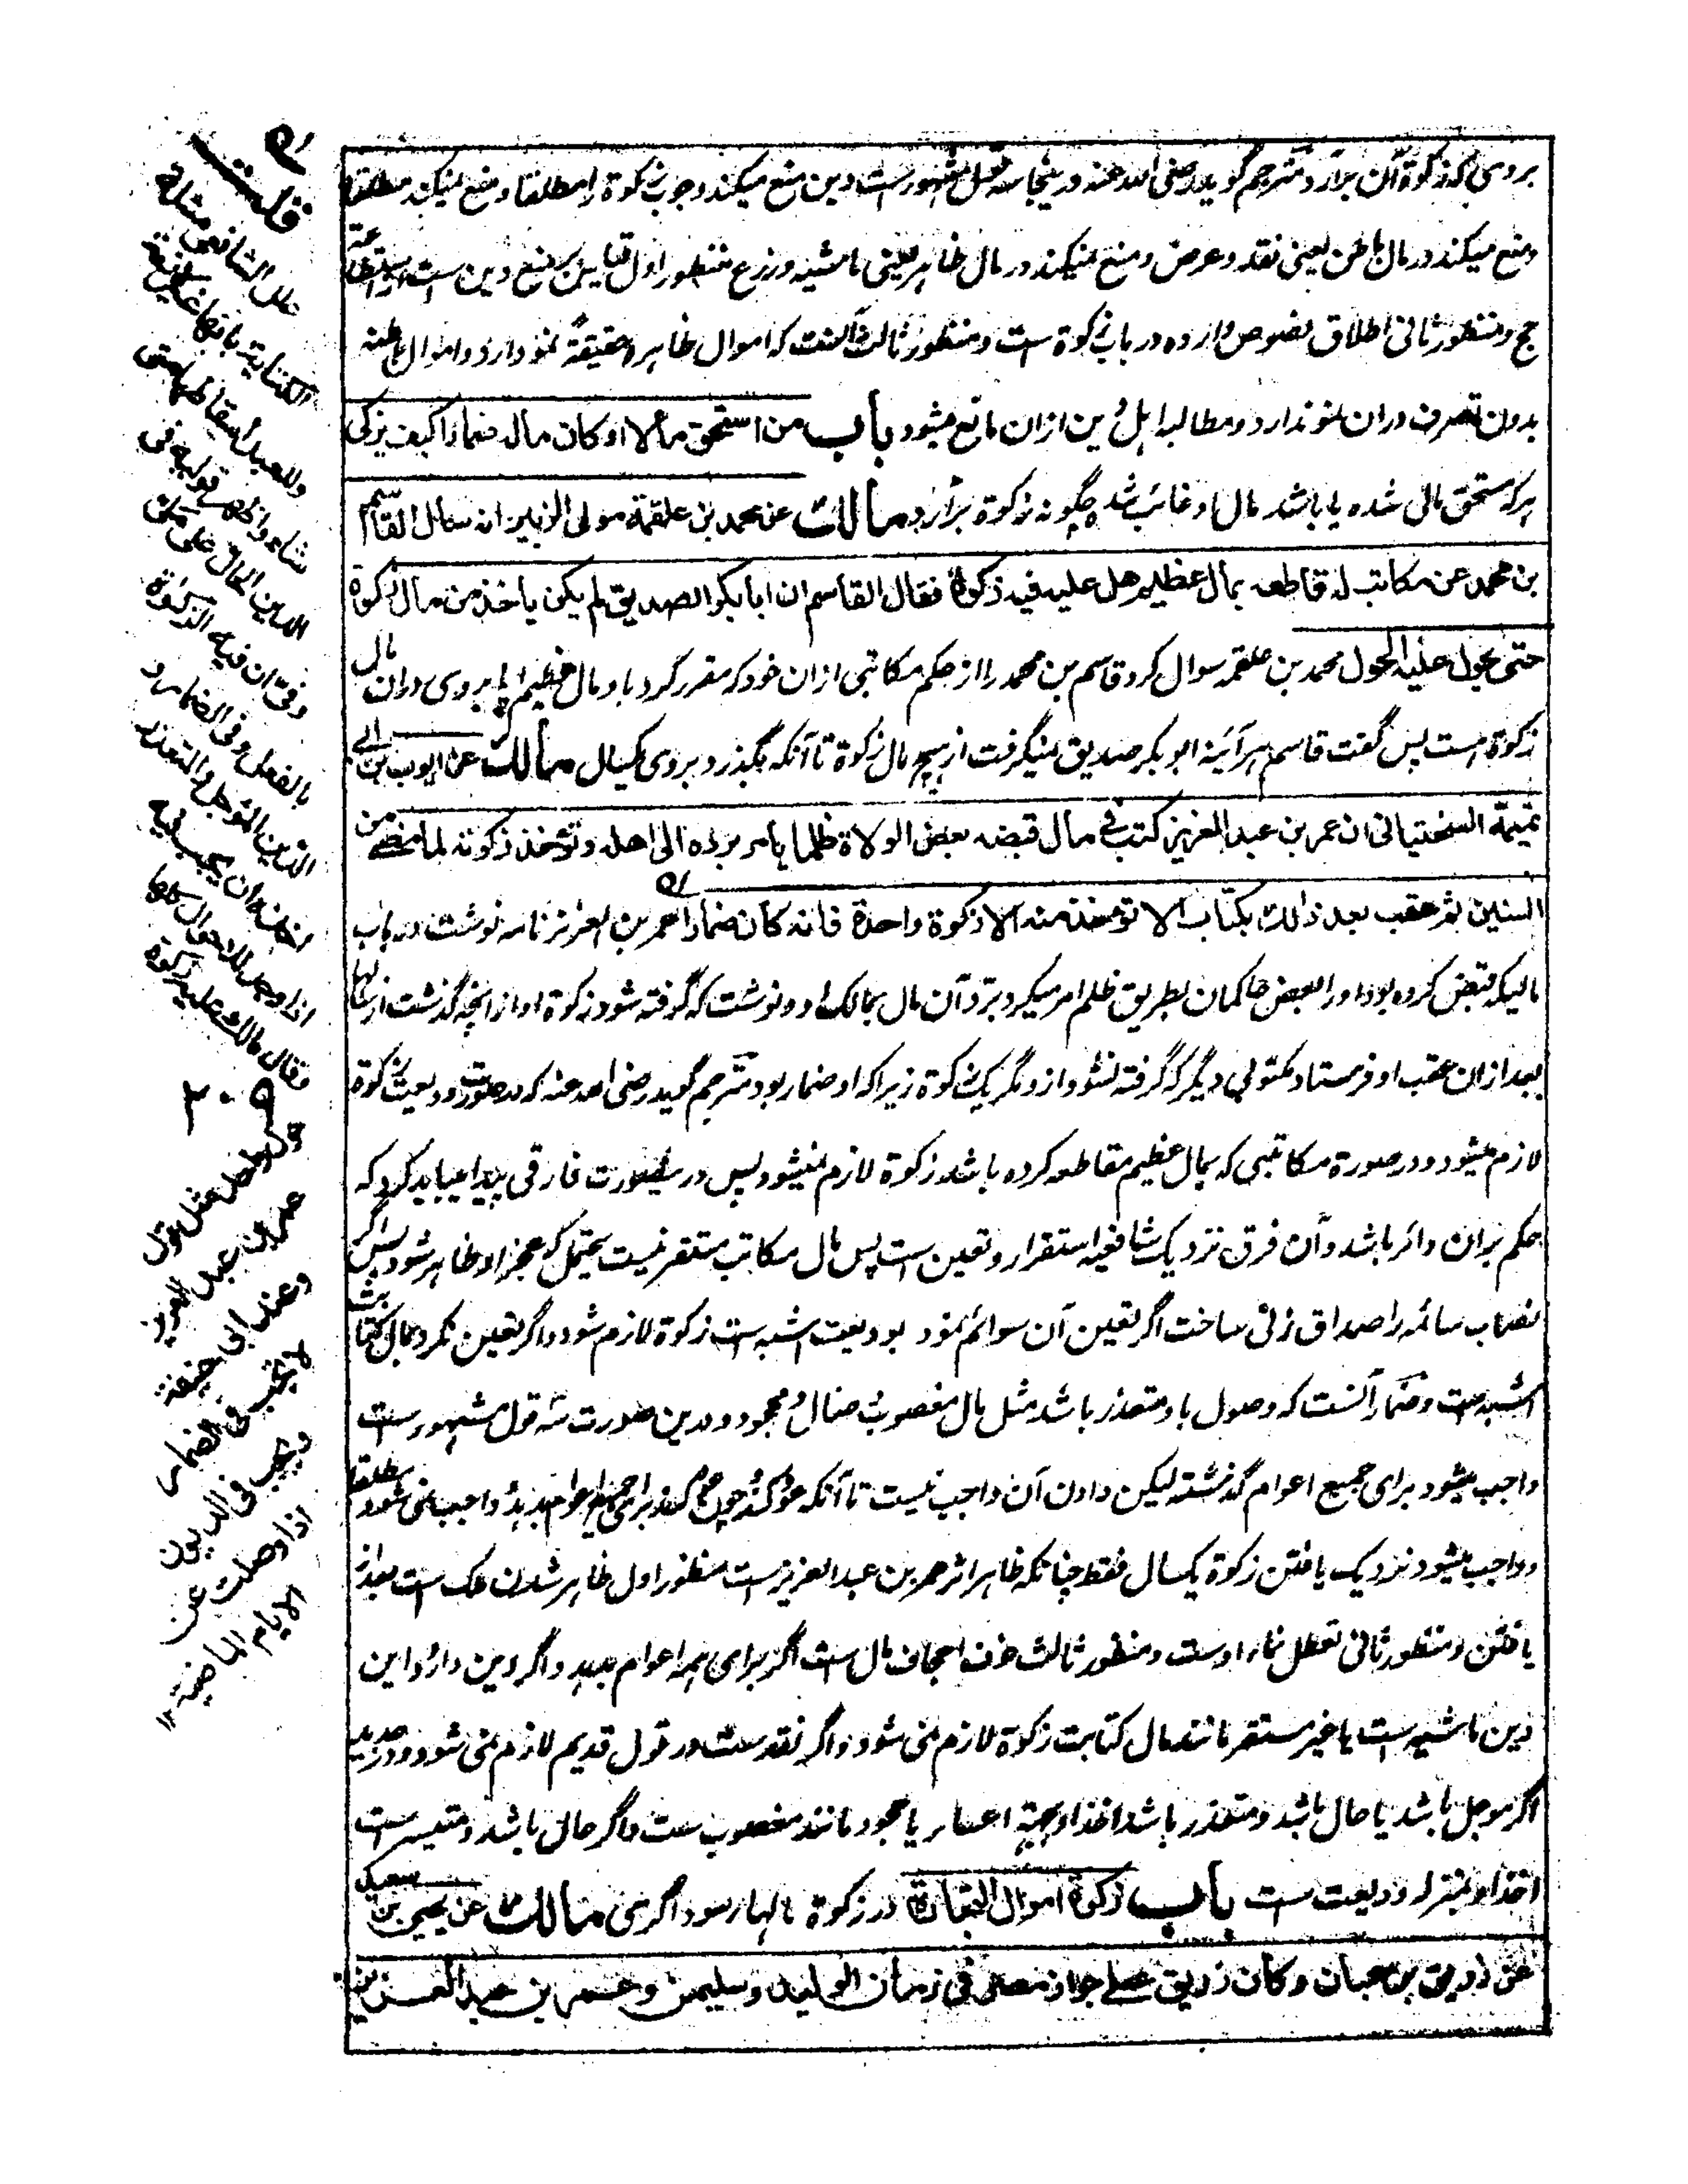 بروی که زکوة آن برآرد مترجم گوید رضی الله عنه در ینجا سه قول مشهورست دین منع میکند وجوب زکوة را مطلقا و منع نمیکند مطلقا
و منع میکند در مال باطن یعنی نقد و عرض و منع نمیکند در مال ظاهر یعنی ماشیه و زرع منظور اول قیاس منع دین ست استطاعة
حج و منظور ثانی اطلاق نصوص وارده در باب زکوة ست و منظور ثالث آنست که اموال ظاهره حقیقةً نمو دارد و اموال باطنه
بدون تصرف دران نمو ندارد و مطالبه اهل دین ازان مانع میشود باب من استحق مالا او کان ماله ضمارا کیف یزکی
هرکه مستحق مالی شده یا باشد مال او غائب شده چگونه زکوة برآرد مالك عن محمد بن علقمة مولی الزبیر انه سأل القاسم
بن محمد عن مکاتب له قاطعه بمال عظیم هل علیه فیه زکوة فقال القاسم ان ابا بکر الصدیق لم یکن یاخذ من مال زکوة
حتی یحول علیه الحول محمد بن علقمه سوال کرد قاسم بن محمد را از حکم مکاتبی ازان خود که مقرر کرد با و مال عظیم آیا بروی دران مال
زکوة هست پس گفت قاسم هر آئینه ابو بکر صدیق نمیگرفت از هیچ مال زکوة تا آنکه بگذرد بروی یکسال مالك عن ایوب بن ابی
تمیمة السختیانی ان عمر بن عبد العزیز کتب فی مال قبضه بعض الولاة ظلما یامر برده الی اهله و تؤخذ زکوته لما مضی من
السنین ثم عقب بعد ذالك بکتاب الا تؤخذ منه الا زکوة واحدة فانه کان ضمارا عمر بن العزیز نامه نوشت در باب
مالیکه قبض کرده بود اورا بعض حاکمان بطریق ظلم امر میکرد برد آن مال بمالک او و نوشت که گرفته شود زکوة او از انچه گذشت از سالها
بعد ازان عقب او فرستاد مکتوبی دیگر که گرفته نشود ازو مگر یک زکوة زیرا که او ضمار بود مترجم گوید رضی الله عنه که در صورت ودیعت زکوة
لازم میشود و در صورة مکاتبی که بمال عظیم مقاطعه کرده باشد زکوة لازم نمیشود پس در ینصورت فارقی پیدا میباید کرد که
حکم بران دائر باشد و آن فرق نزدیک شافعیه استقرار و تعین ست پس مال مکاتب مستقر نیست یحتمل که عجز او ظاهر شود پس اگر
نصاب سائمه را صداق زنی ساخت اگر تعین آن سوائم نمود بودیعت اشبه ست زکوة لازم شود و اگر تعین نکرد بمال کتابت
اشبه ست و ضمار آنست که وصول باو متعذر باشد مثل مال مغصوب و ضال و مجحود و درین صورت سه قول مشهور ست
واجب میشود برای جمیع اعوام گذشته لیکن دادن آن واجب نیست تا آنکه عود کند چون عود کند برای جمیع اعوام بدهد و واجب نمی شود مطلقا
و واجب میشود نزدیک یافتن زکوة یکسال فقط چنانکه ظاهر اثر عمر بن عبد العزیز ست منظور اول ظاهر شدن ملک ست بعد از
یافتن و منظور ثانی تعطل نماء اوست و منظور ثالث خوف اجحاف مال ست اگر برای همه اعوام بدهد و اگر دین دارد و این
دین ماشیه ست یا غیر مستقر مانند مال کتابت زکوة لازم نمی شود و اگر نقد ست در قول قدیم لازم نمی شود و در جدید
اگر موجل باشد یا حال باشد و متعذر باشد اخذ او بجهة اعسار یا جحود مانند مغصوب ست و اگر حال باشد و متیسر ست
اخذ او بمنزله ودیعت ست باب زکوة اموال التجارة در زکوة مالهای سوداگری مالك عن یحیی بن سعید
عن زریق بن حیان و کان زریق علی جواز مصر فی زمان الولید و سلیمن و عمر بن عبد العزیز
قلت
علی الشافعی
الکتابة بانها غیر
وللعبد اسقاطها متی
شاء واظهر قولیه فی
الدین الحال علی ملی
وفی ان فیه الزکوة
بالفعل وفی الضمار و
الدین المؤجل والمتعذر
اخذه ان یجب فیه
اذا وصل للاحوال کلها
وقال مالك علیه زکوة
۲۰۹
حول واحد مثل قول
عمر بن عبد العزیز
وعند ابی حنیفة
لا تجب فی الضمار
ویجب فی الدیون
اذا وصلت عن
الایام الماضیة ۱۲